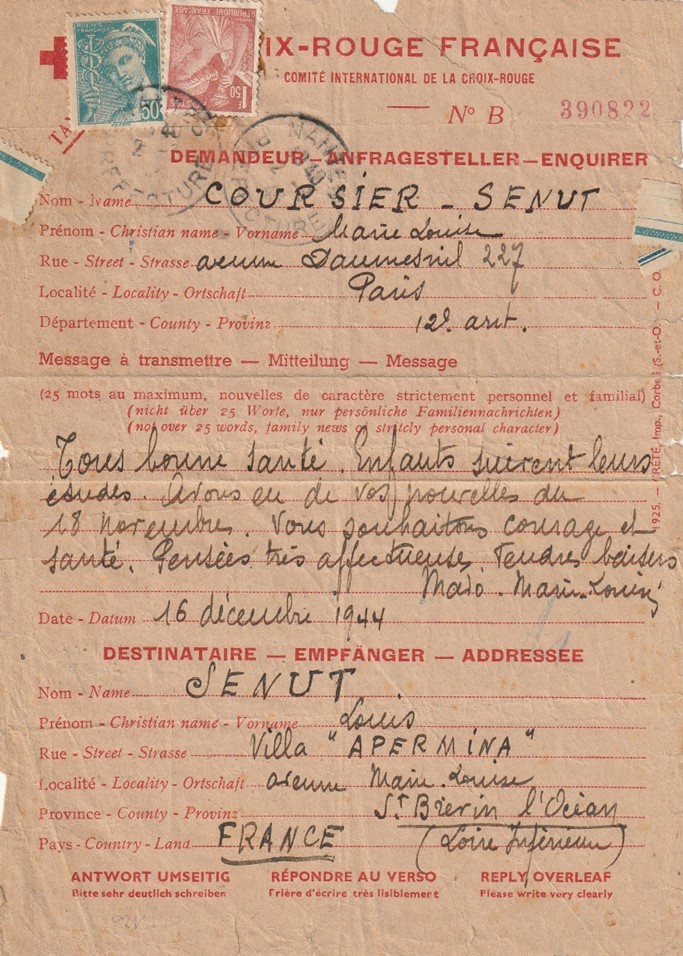 IX-ROUGE FRANÇAISE
COMITÉ INTERNATIONAL DE LA CROIX-ROUGE
N° B 390822
50
RÉPUBLIQUE FRANÇAISE
1F50
POSTES
NANTES
PRÉFECTURE
DEMANDEUR — ANFRAGESTELLER — ENQUIRER
Nom - Name COURSIER - SENUT
Prénom - Christian name - Vorname Marie Louise
Rue - Street - Strasse avenue Daumesnil 227
Localité - Locality - Ortschaft Paris
Département - County - Provinz 12e arrt.
Message à transmettre — Mitteilung — Message
(25 mots au maximum, nouvelles de caractère strictement personnel et familial)
(nicht über 25 Worte, nur persönliche Familiennachrichten)
(not over 25 words, family news of strictly personal character)
Tous bonne santé. Enfants suivent leurs
études. Avons eu de vos nouvelles du
18 novembre. Vous souhaitons courage et
santé. Pensées très affectueuses. Tendres baisers
Mado. Marie-Louise
Date - Datum 16 décembre 1944
DESTINATAIRE — EMPFÄNGER — ADDRESSEE
Nom - Name SENUT
Prénom - Christian name - Vorname Louis
Rue - Street - Strasse Villa "APERMINA"
Localité - Locality - Ortschaft avenue Marie Louise
Province - County - Provinz St Brévin l'Océan
Pays - Country - Land FRANCE (Loire Inférieure)
ANTWORT UMSEITIG RÉPONDRE AU VERSO REPLY OVERLEAF
Bitte sehr deutlich schreiben Prière d'écrire très lisiblement Please write very clearly
1925. — CRÉTÉ, Imp., Corbeil (S.-et-O.) — C. O.